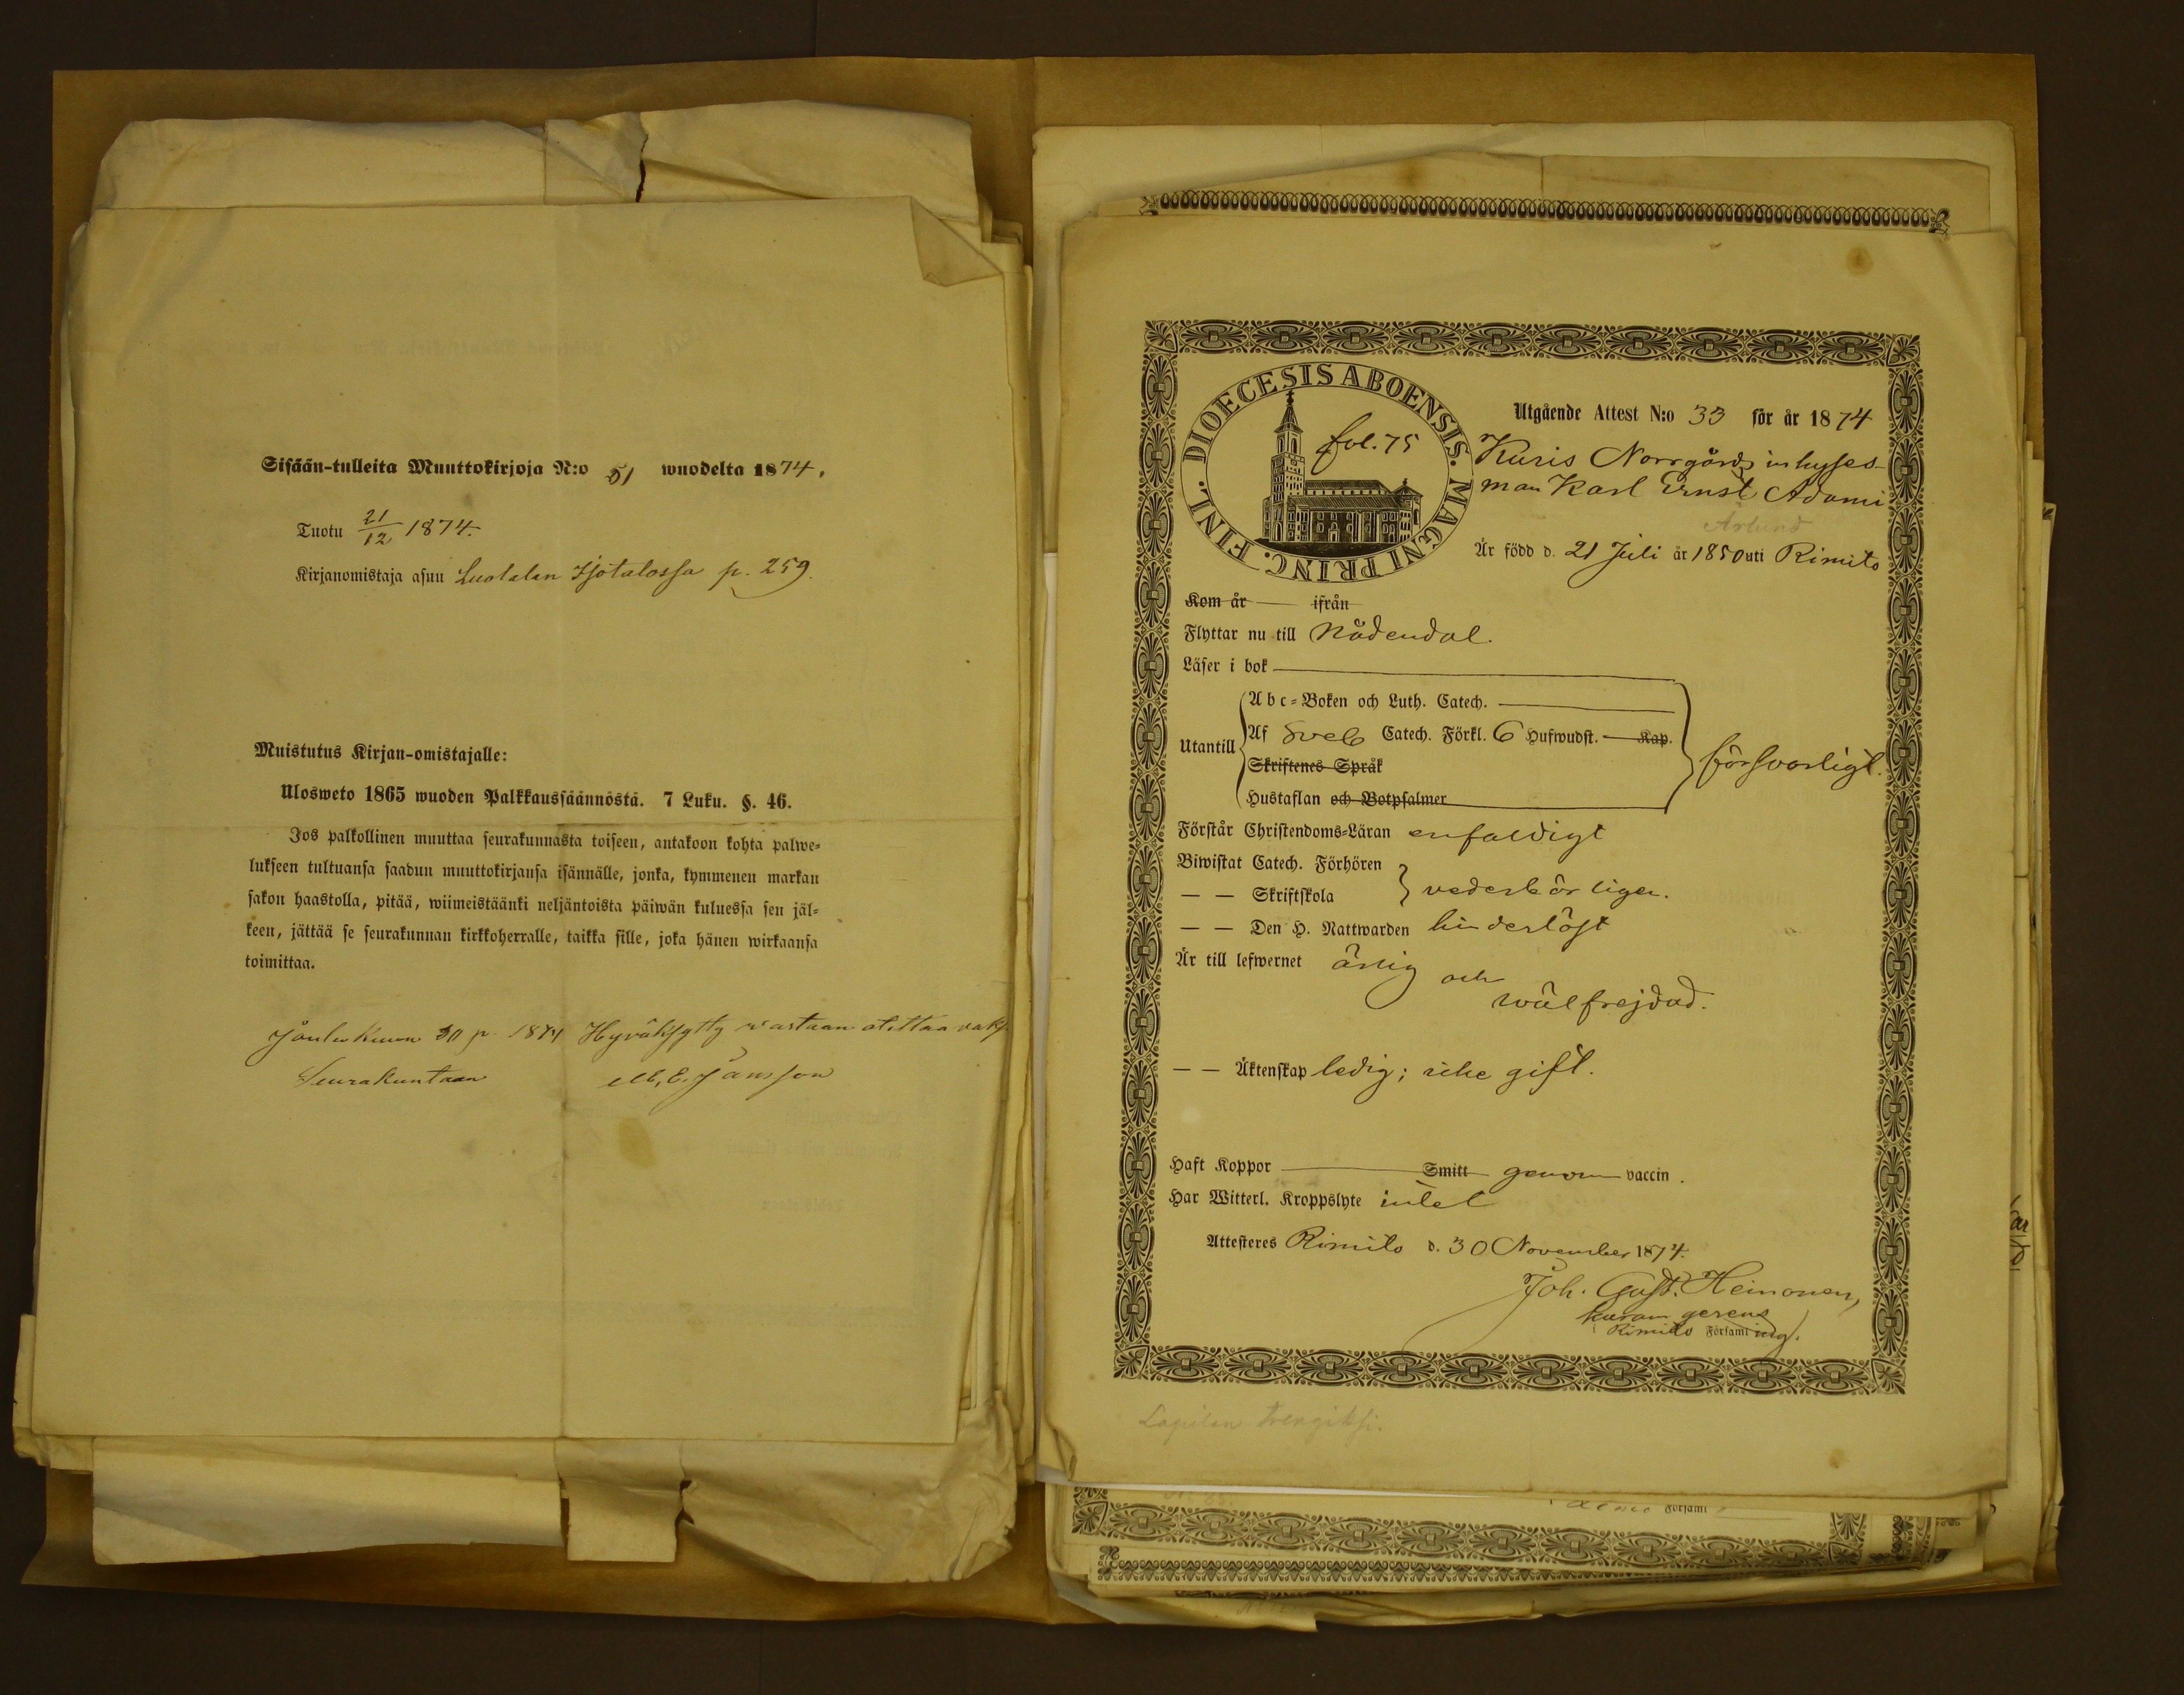 Sisään-tulleita Muuttokirjoja N:o 51 wuodelta 1874.
Tuotu 21/12 1874.
Kirjanomistaja asuu Luolalan Isotalossa p. 259.
Muistutus Kirjan-omistajalle:
Ulosweto 1865 wuoden Palkkaussäännöstä. 7 Luku. §. 46.
Jos palkollinen muuttaa seurakunnasta toiseen, antakoon kohta palwe-
lukseen tultuansa saadun muuttokirjansa isännälle, jonka, kymmenen markan
sakon haastolla, pitää, wiimeistäänki neljäntoista päiwän kuluessa sen jäl-
keen, jättää se seurakunnan kirkkoherralle, taikka sille, joka hänen wirkaansa
toimittaa.
Joulukuun 20 p. 1874 Hyväksytty wastaan otettaa
Seurakuntaan M. E. Jansson
DIOECESIS ABOENSIS. MAGNI PRINC. FINL.
fol. 75
Utgående Attest N:o 33 för år 1874
Kuris Norrgårds inhyses-
man Karl Ernst Adami
Arlund
Är född d. 21 Juli år 1850 uti Rimito
Kom år ifrån
Flyttar nu till Nådendal.
Läser i bok
Utantill
A b c-Boken och Luth. Catech.
Af Sveb Catech. Förkl. 6 Hufwudst. Kap.
Skriftenes Språk
Hustaflan och Botpsalmer
försvarligt.
Förstår Christendoms-Läran enfaldigt
Biwistat Catech. Förhören
— — Skriftskola
vederbörligen.
— — Den H. Nattwarden hinderlöst
Är till lefwernet ärlig och
wälfrejdad.
— — Äktenskap ledig; icke gift.
Haft Koppor Smitt genom vaccin.
Har Witterl. Kroppslyte intet
Attesteres Rimito d. 30 November 1874.
Joh. Gust. Heinonen,
curam gerens
Rimito Församling.
Lapilan trengiksi.
Församl